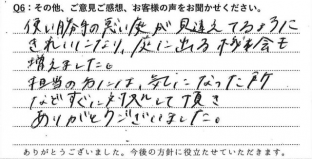 Q6：その他、ご意見ご感想、お客様の声をお聞かせください。
使い勝手の悪い庭が見違えてるように
きれいになり、庭に出る機会も
増えました。
担当の方には、気になった所
などすぐに対処して頂き
ありがとうございました。
ありがとうございました。今後の方針に役立たせていただきます。